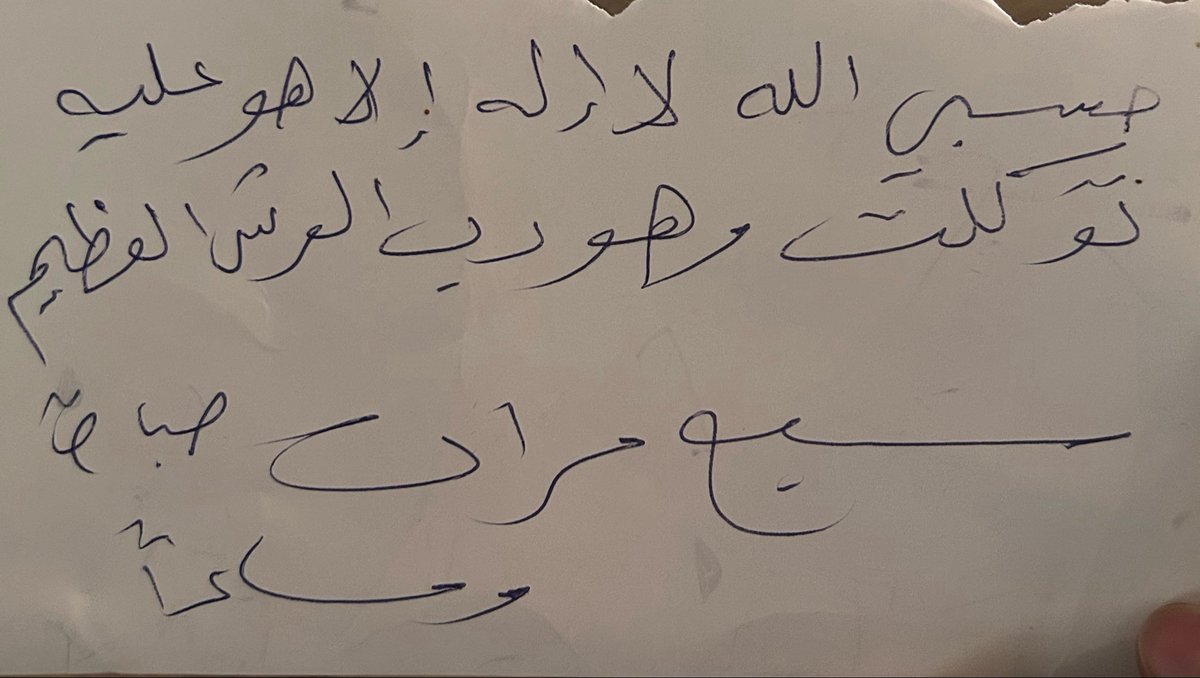 حسبي الله لا إله إلا هو عليه
توكلت وهو رب العرش العظيم
سبع مرات صباحاً
ومساءاً